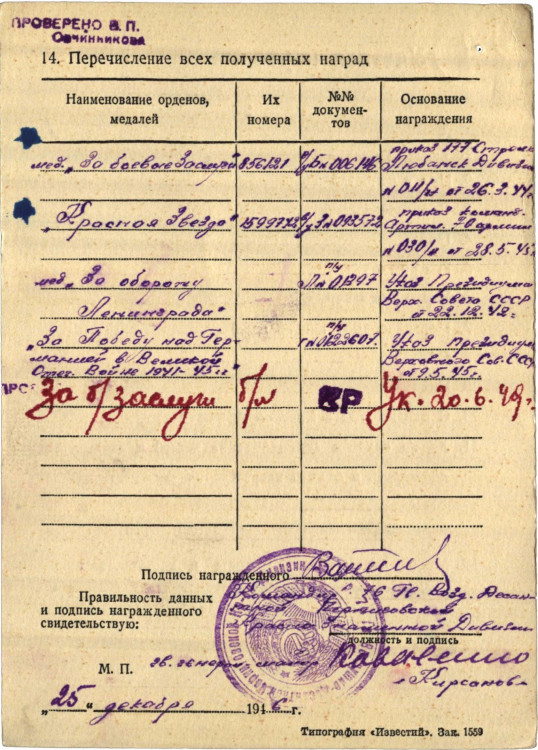 ПРОВЕРЕНО В. П.
Овчинникова
14. Перечисление всех полученных наград
Наименование орденов, медалей
Их номера
№№ документов
Основание награждения
мед. „За боевые Заслуги" 856121 п/у Б № 006146 приказ 177 Стрелк. Любанск. Дивизии
№ 011/н от 26.3.44 г.
„Красная Звезда" 1599772 З № 093572 приказ команд. Артил. 70 армии
№ 030/н от 28.5.45 г.
мед. „За оборону Ленинграда" п/у Л № 01397 Указ Президиума Верх. Совета СССР от 22.12.42 г.
„За Победу над Германией в Великой Отеч. Войне 1941-45 г." п/у Г № 0122607 Указ Президиум Верховного Сов. ССС от 9.5.45 г.
За б/заслуги б/н ВР Ук. 20.6.49 г.
Подпись награжденного
Правильность данных
и подпись награжденного
свидетельствую:
Командир
Гв. Возд. Десан
Черниговской
Красно Знаменной Дивизии
должность и подпись
М. П.
гв. генерал майор
Кирсанов
„25" декабря 1946 г.
Типография «Известий». Зак. 1559